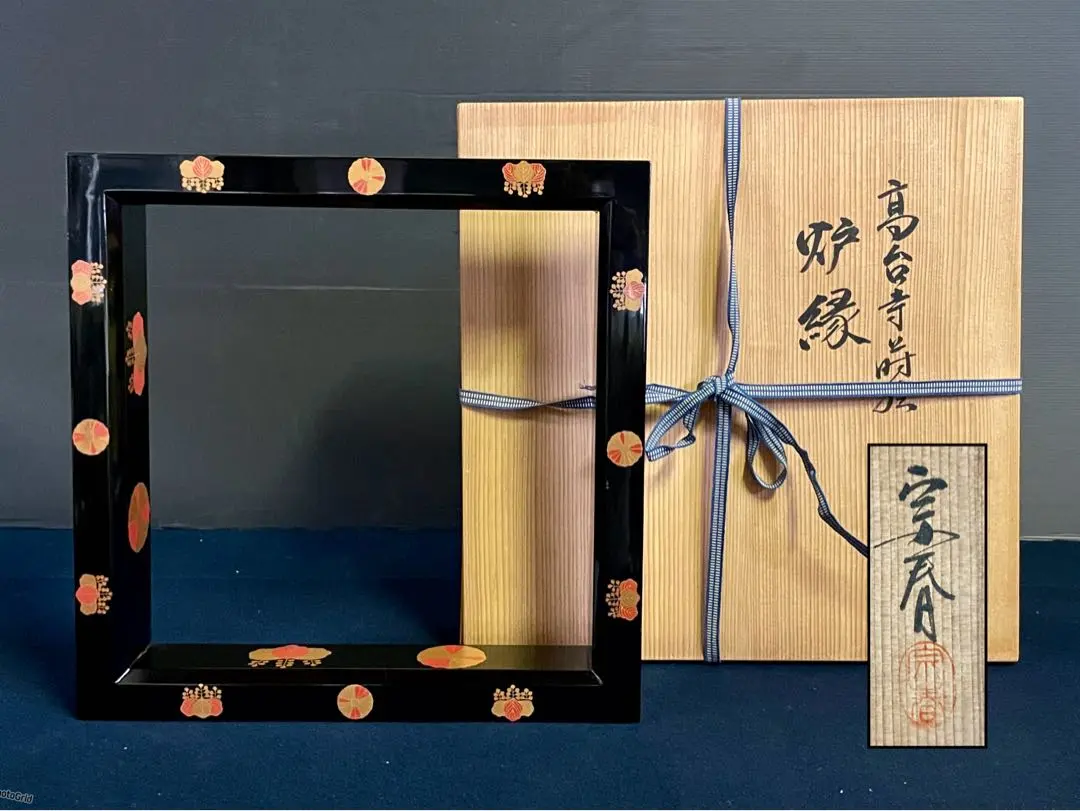 高台寺蒔絵
炉縁
宗春
宗春
PhotoGrid